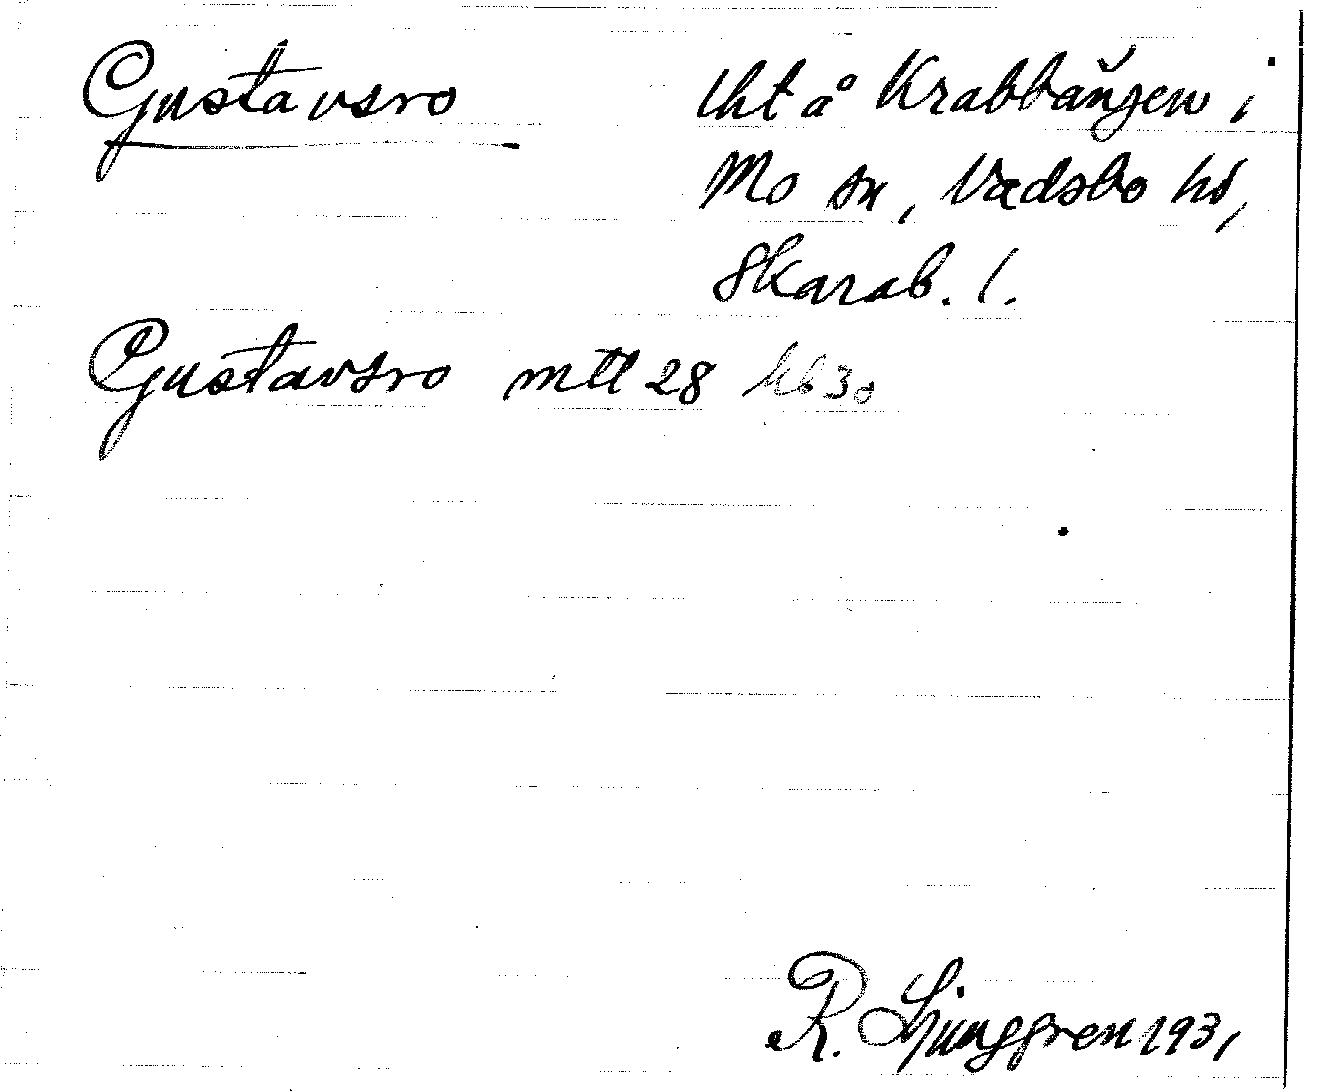 Gustavsro lht å Krabbängen i
Mo sn, Vadsbo hd,
Skarab. l.
Gustavsro mtl 28 hb 30
R. Ljunggren 1931